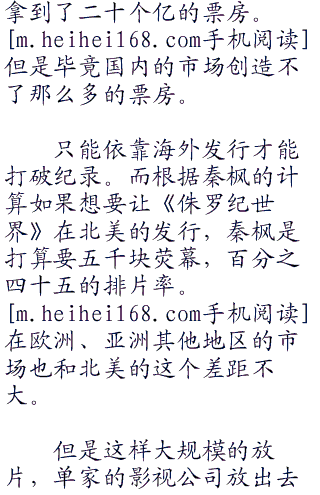 拿到了二十个亿的票房。
[m.heihei168.com手机阅读]
但是毕竟国内的市场创造不
了那么多的票房。
只能依靠海外发行才能
打破纪录。而根据秦枫的计
算如果想要让《侏罗纪世
界》在北美的发行，秦枫是
打算要五千块荧幕，百分之
四十五的排片率。
[m.heihei168.com手机阅读]
在欧洲、亚洲其他地区的市
场也和北美的这个差距不
大。
但是这样大规模的放
片，单家的影视公司放出去